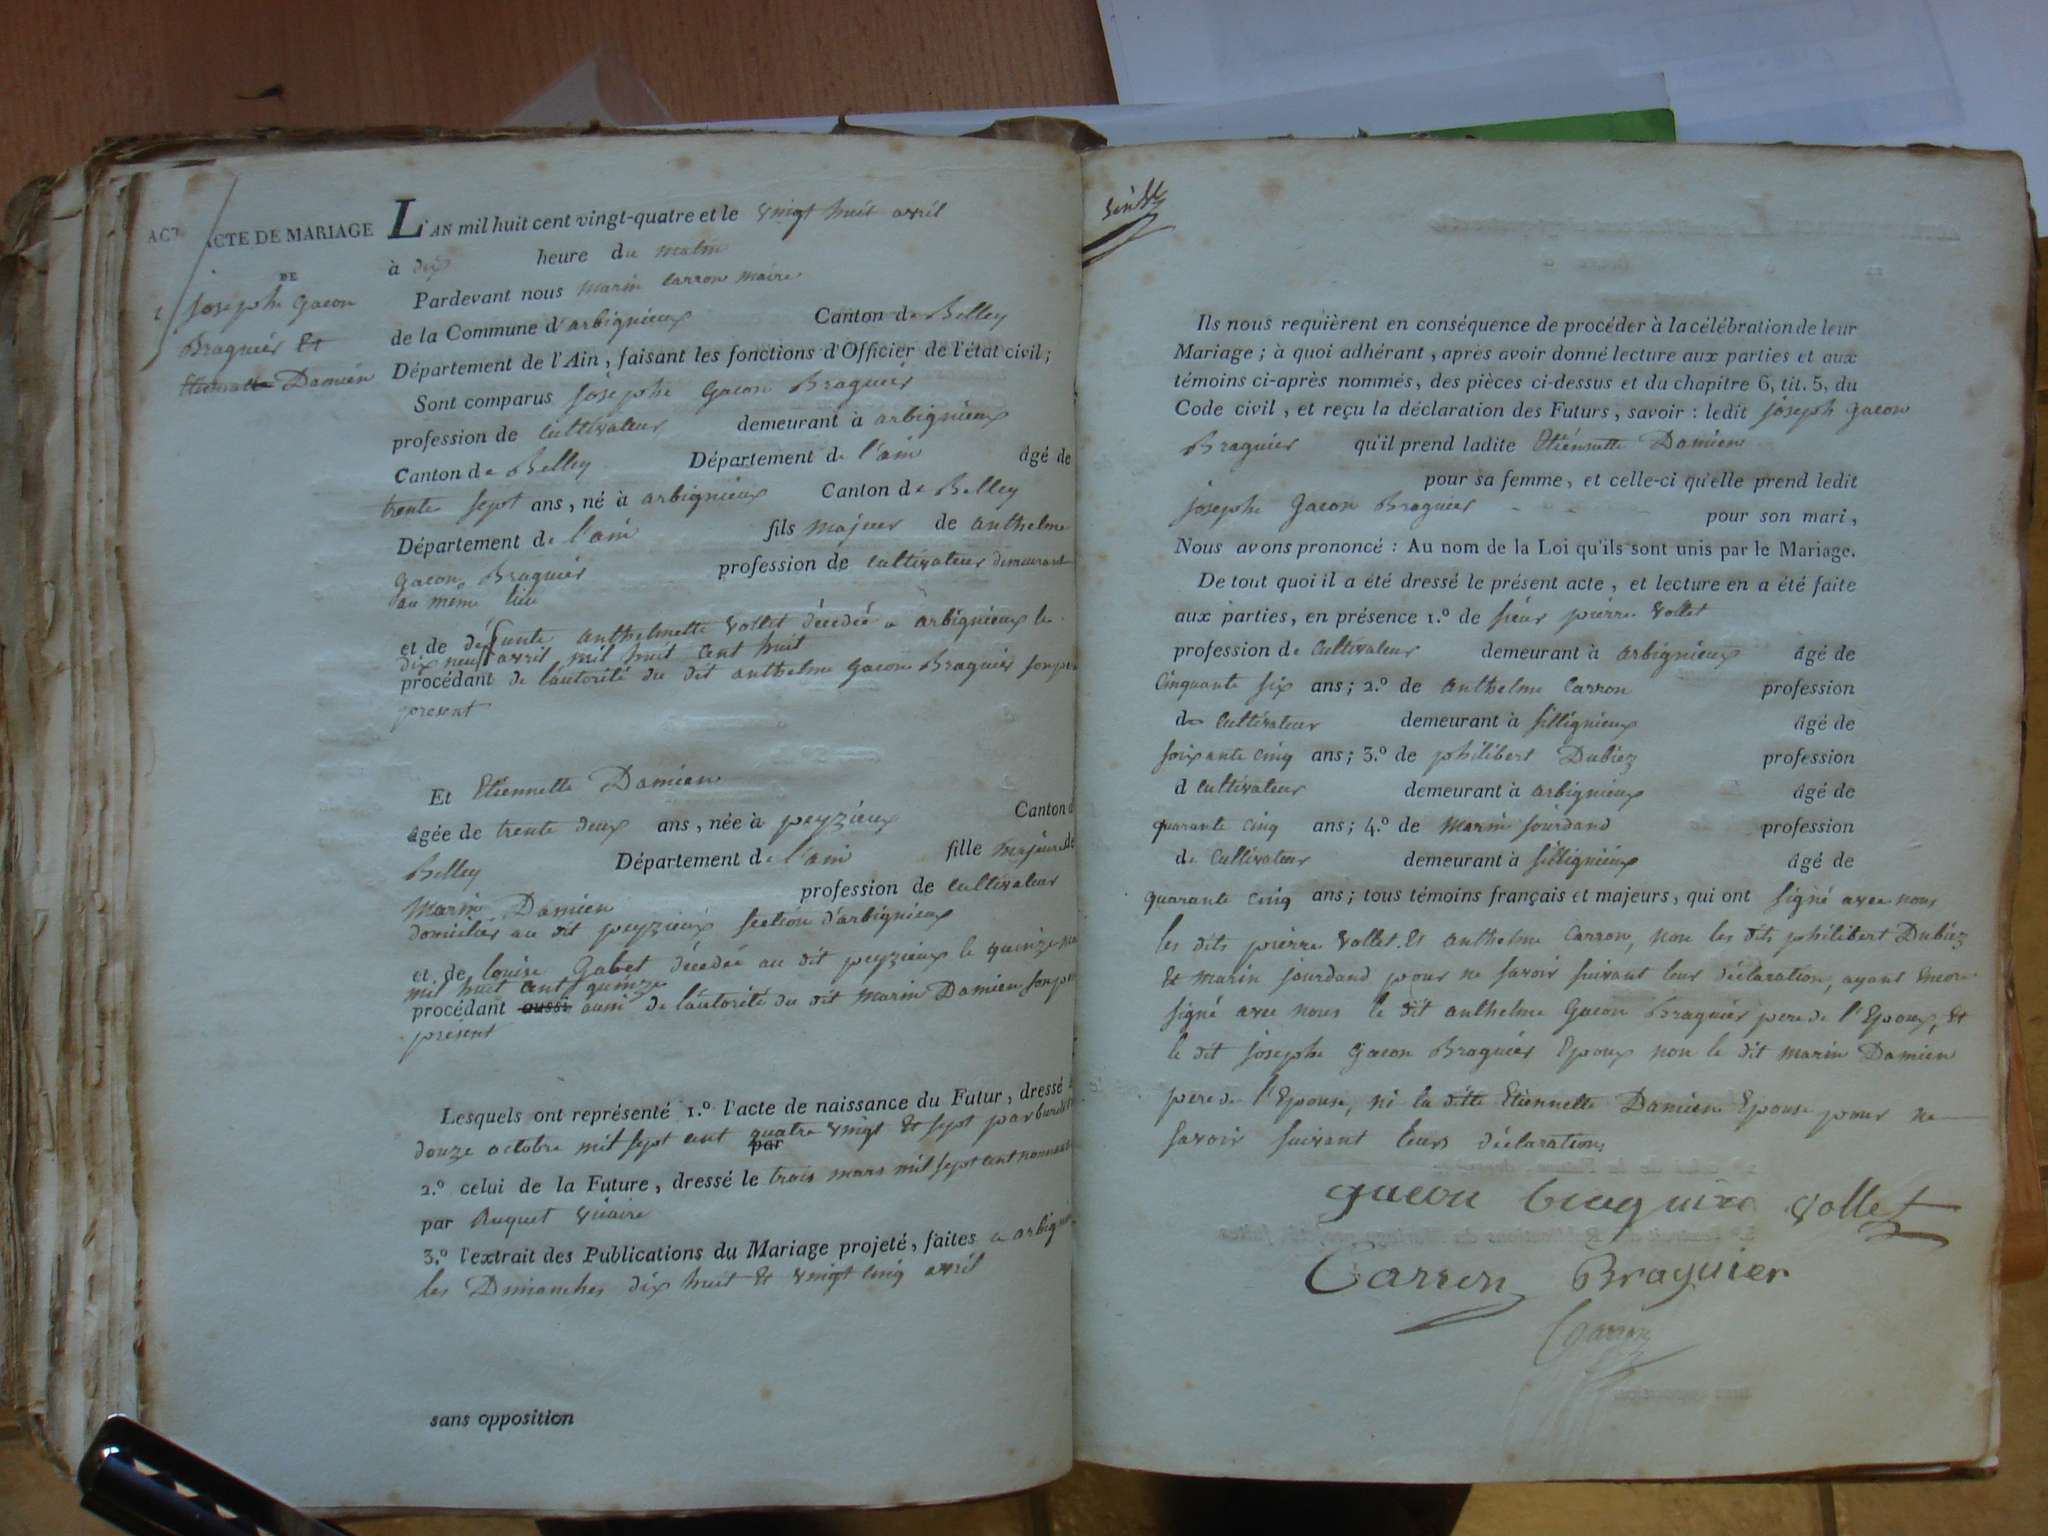 ACTE DE MARIAGE
DE
Josephe Gacon
Braguier Et
Etiennette Damien
L'AN mil huit cent vingt-quatre et le vingt huit avril
à dix heure du matin
Pardevant nous marin Carron maire
de la Commune d'arbignieux Canton de Belley
Département de l'Ain, faisant les fonctions d'Officier de l'état civil;
Sont comparus Josephe Gacon Braguier
profession de cultivateur demeurant à arbignieux
Canton de Belley Département de l'ain âgé de
trente sept ans, né à arbignieux Canton de Belley
Département de l'ain fils majeur de anthelme
Gacon Braguier profession de cultivateur demeurant
au meme lieu
et de défunte anthelmette Vollet décedée a arbignieux le
dix neuf avril mil huit cent huit
procédant de l'autorité du dit anthelme Gacon Braguier son
present
Et Etiennette Damien
âgée de trente deux ans, née à peyzieux Canton d
Belley Département de l'ain fille majeure de
Marin Damien profession de cultivateur
domicilier au dit peyzieux section d'arbignieux
et de louise Gabet décedée au dit peyzieux le quinze
mil huit cent quinze
procédant aussi aussi de l'autorité du dit marin Damien son
présent
Lesquels ont représenté 1.º l'acte de naissance du Futur, dressé
douze octobre mil sept cent quatre vingt et sept par
par
2.º celui de la Future, dressé le trois mars mil sept cent
par Ruquet Vicaire
3.º l'extrait des Publications du Mariage projeté, faites a
les Dimanches dix huit et vingt cinq avril
sans opposition
Ils nous requièrent en conséquence de procéder à la célébration de leur
Mariage; à quoi adhérant, après avoir donné lecture aux parties et aux
témoins ci-après nommés, des pièces ci-dessus et du chapitre 6, tit. 5, du
Code civil, et reçu la déclaration des Futurs, savoir: ledit Joseph Gacon
Braguier qu'il prend ladite Etiennette Damien
pour sa femme, et celle-ci qu'elle prend ledit
Josephe Gacon Braguier pour son mari,
Nous avons prononcé: Au nom de la Loi qu'ils sont unis par le Mariage.
De tout quoi il a été dressé le présent acte, et lecture en a été faite
aux parties, en présence 1.º de sieur pierre Vollet
profession de Cultivateur demeurant à arbignieux âgé de
Cinquante six ans; 2.º de anthelme Carron profession
de Cultivateur demeurant à sillignieux âgé de
soixante cinq ans; 3.º de philibert Dubiez profession
d cultivateur demeurant à arbignieux âgé de
quarante cinq ans; 4.º de Marin Jourdand profession
de Cultivateur demeurant à sillignieux âgé de
quarante cinq ans; tous témoins français et majeurs, qui ont signé avec nous
les dits pierre Vollet et anthelme Carron, non les dits philibert Dubiez
et marin jourdand pour ne savoir suivant leur déclaration, ayant encore
signé avec nous le dit anthelme Gacon Braguier pere de l'Epoux, et
le dit Josephe Gacon Braguier Epoux non le dit marin Damien
pere de l'Epouse, ni la ditte Etiennette Damien Epouse pour ne
savoir suivant leurs déclarations
gacon braguier Vollet
Carron Braguier
Carron